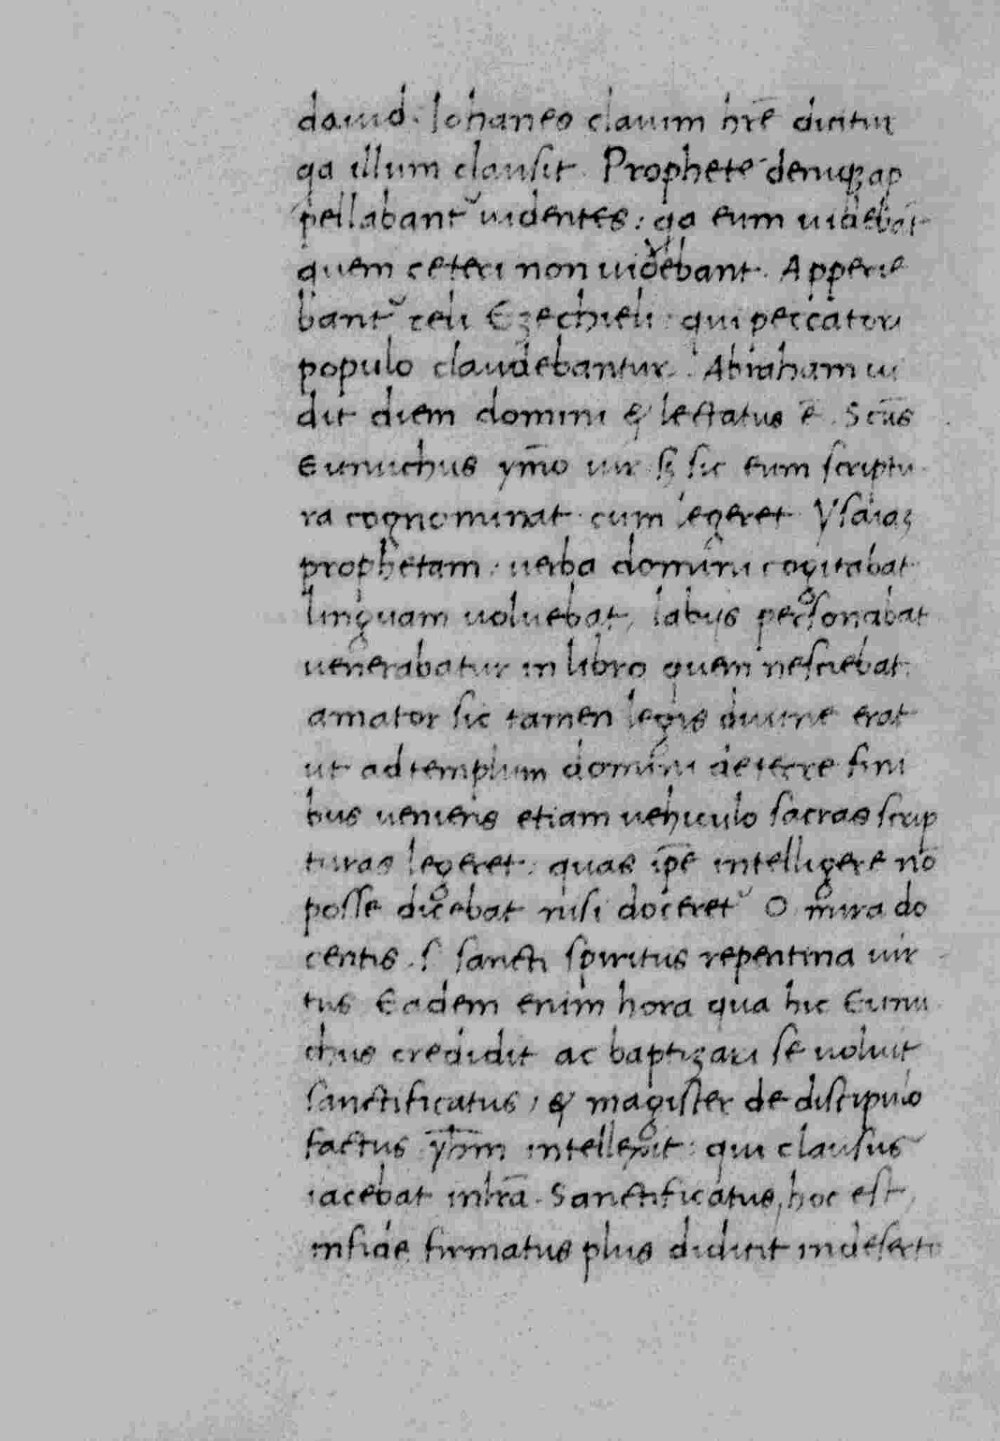 dauid. Iohanes clauim hr̄e dicitur
qa illum clausit. Prophete deniqꝫ ap
pellabant᷑ uidentes: qa eum uidebāt
quem ceteri non uidebant. Apperie
bant᷑ celi Ezechieli: qui peccatori
populo claudebantur. Abraham ui
dit diem domini & lectatus ē. Sc̄us
Eunuchus ym̄o uir sꝫ sic eum scriptu
ra cognominat. cum legeret Ysaiaꝫ
prophetam: uerba domini cogitabat
linguam uoluebat, labijs personabat
uenerabatur in libro quem nesciebat.
amator sic tamen legis diuine erat
ut ad templum domini de terre fini
bus ueniens etiam uehiculo sacras scrip
turas legeret. quas ip̄e intelligere nō
posse dicebat nisi doceret᷑ O mira do
centis .s. sancti spiritus repentina uir
tus Eadem enim hora qua hic Eunu
chus credidit ac baptizari se uoluit
sanctificatus, & magister de discipulo
factus yh̄m intellexit: qui clausus
iacebat in lr̄a. Sanctificatus, hoc est,
in fide firmatus plus didicit in deserto